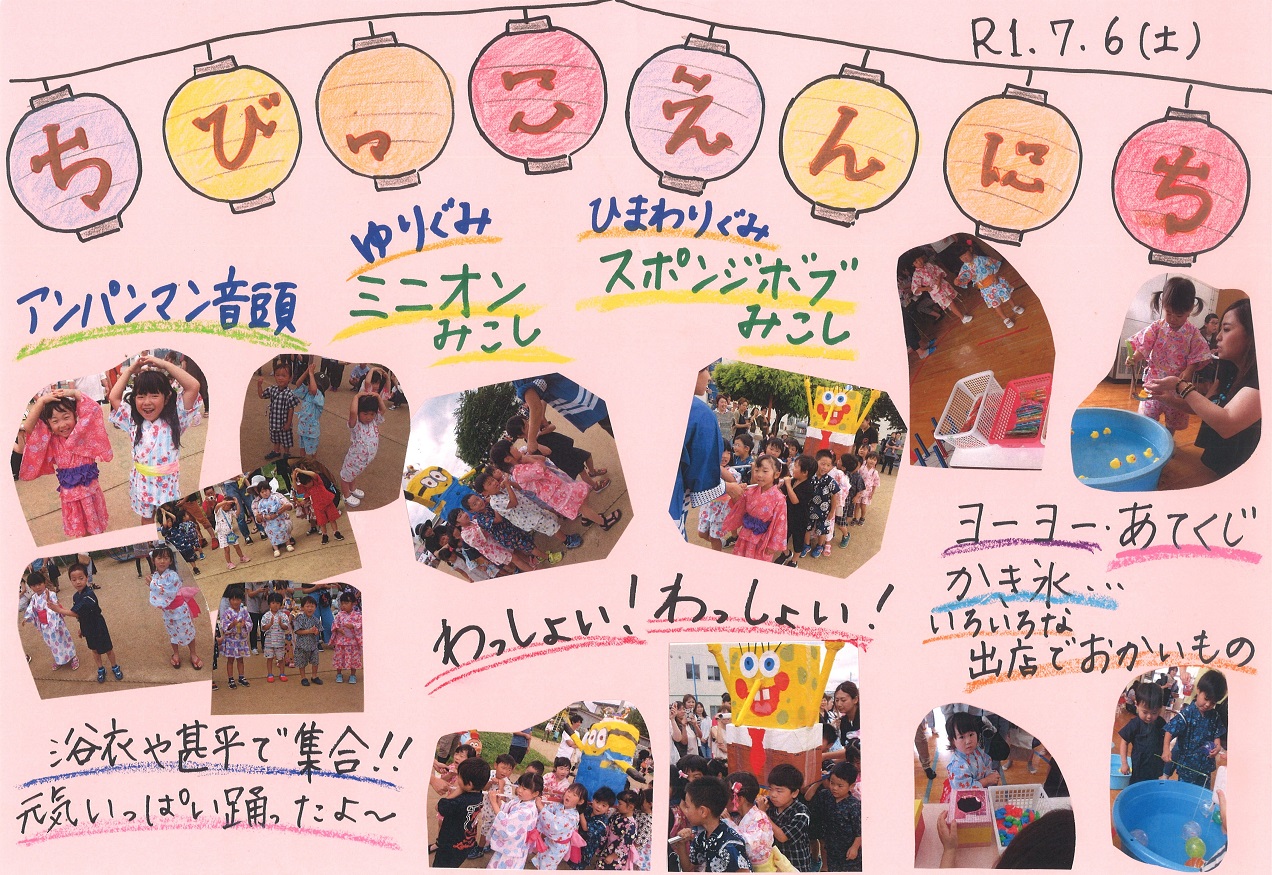 R1.7.6(土)
ちびっこえんにち
アンパンマン音頭
ゆりぐみ
ミニオン
みこし
ひまわりぐみ
スポンジボブ
みこし
わっしょい!わっしょい!
ヨーヨー・あてくじ
かき氷...
いろいろな
出店でおかいもの
浴衣や甚平で集合!!
元気いっぱい踊ったよ〜